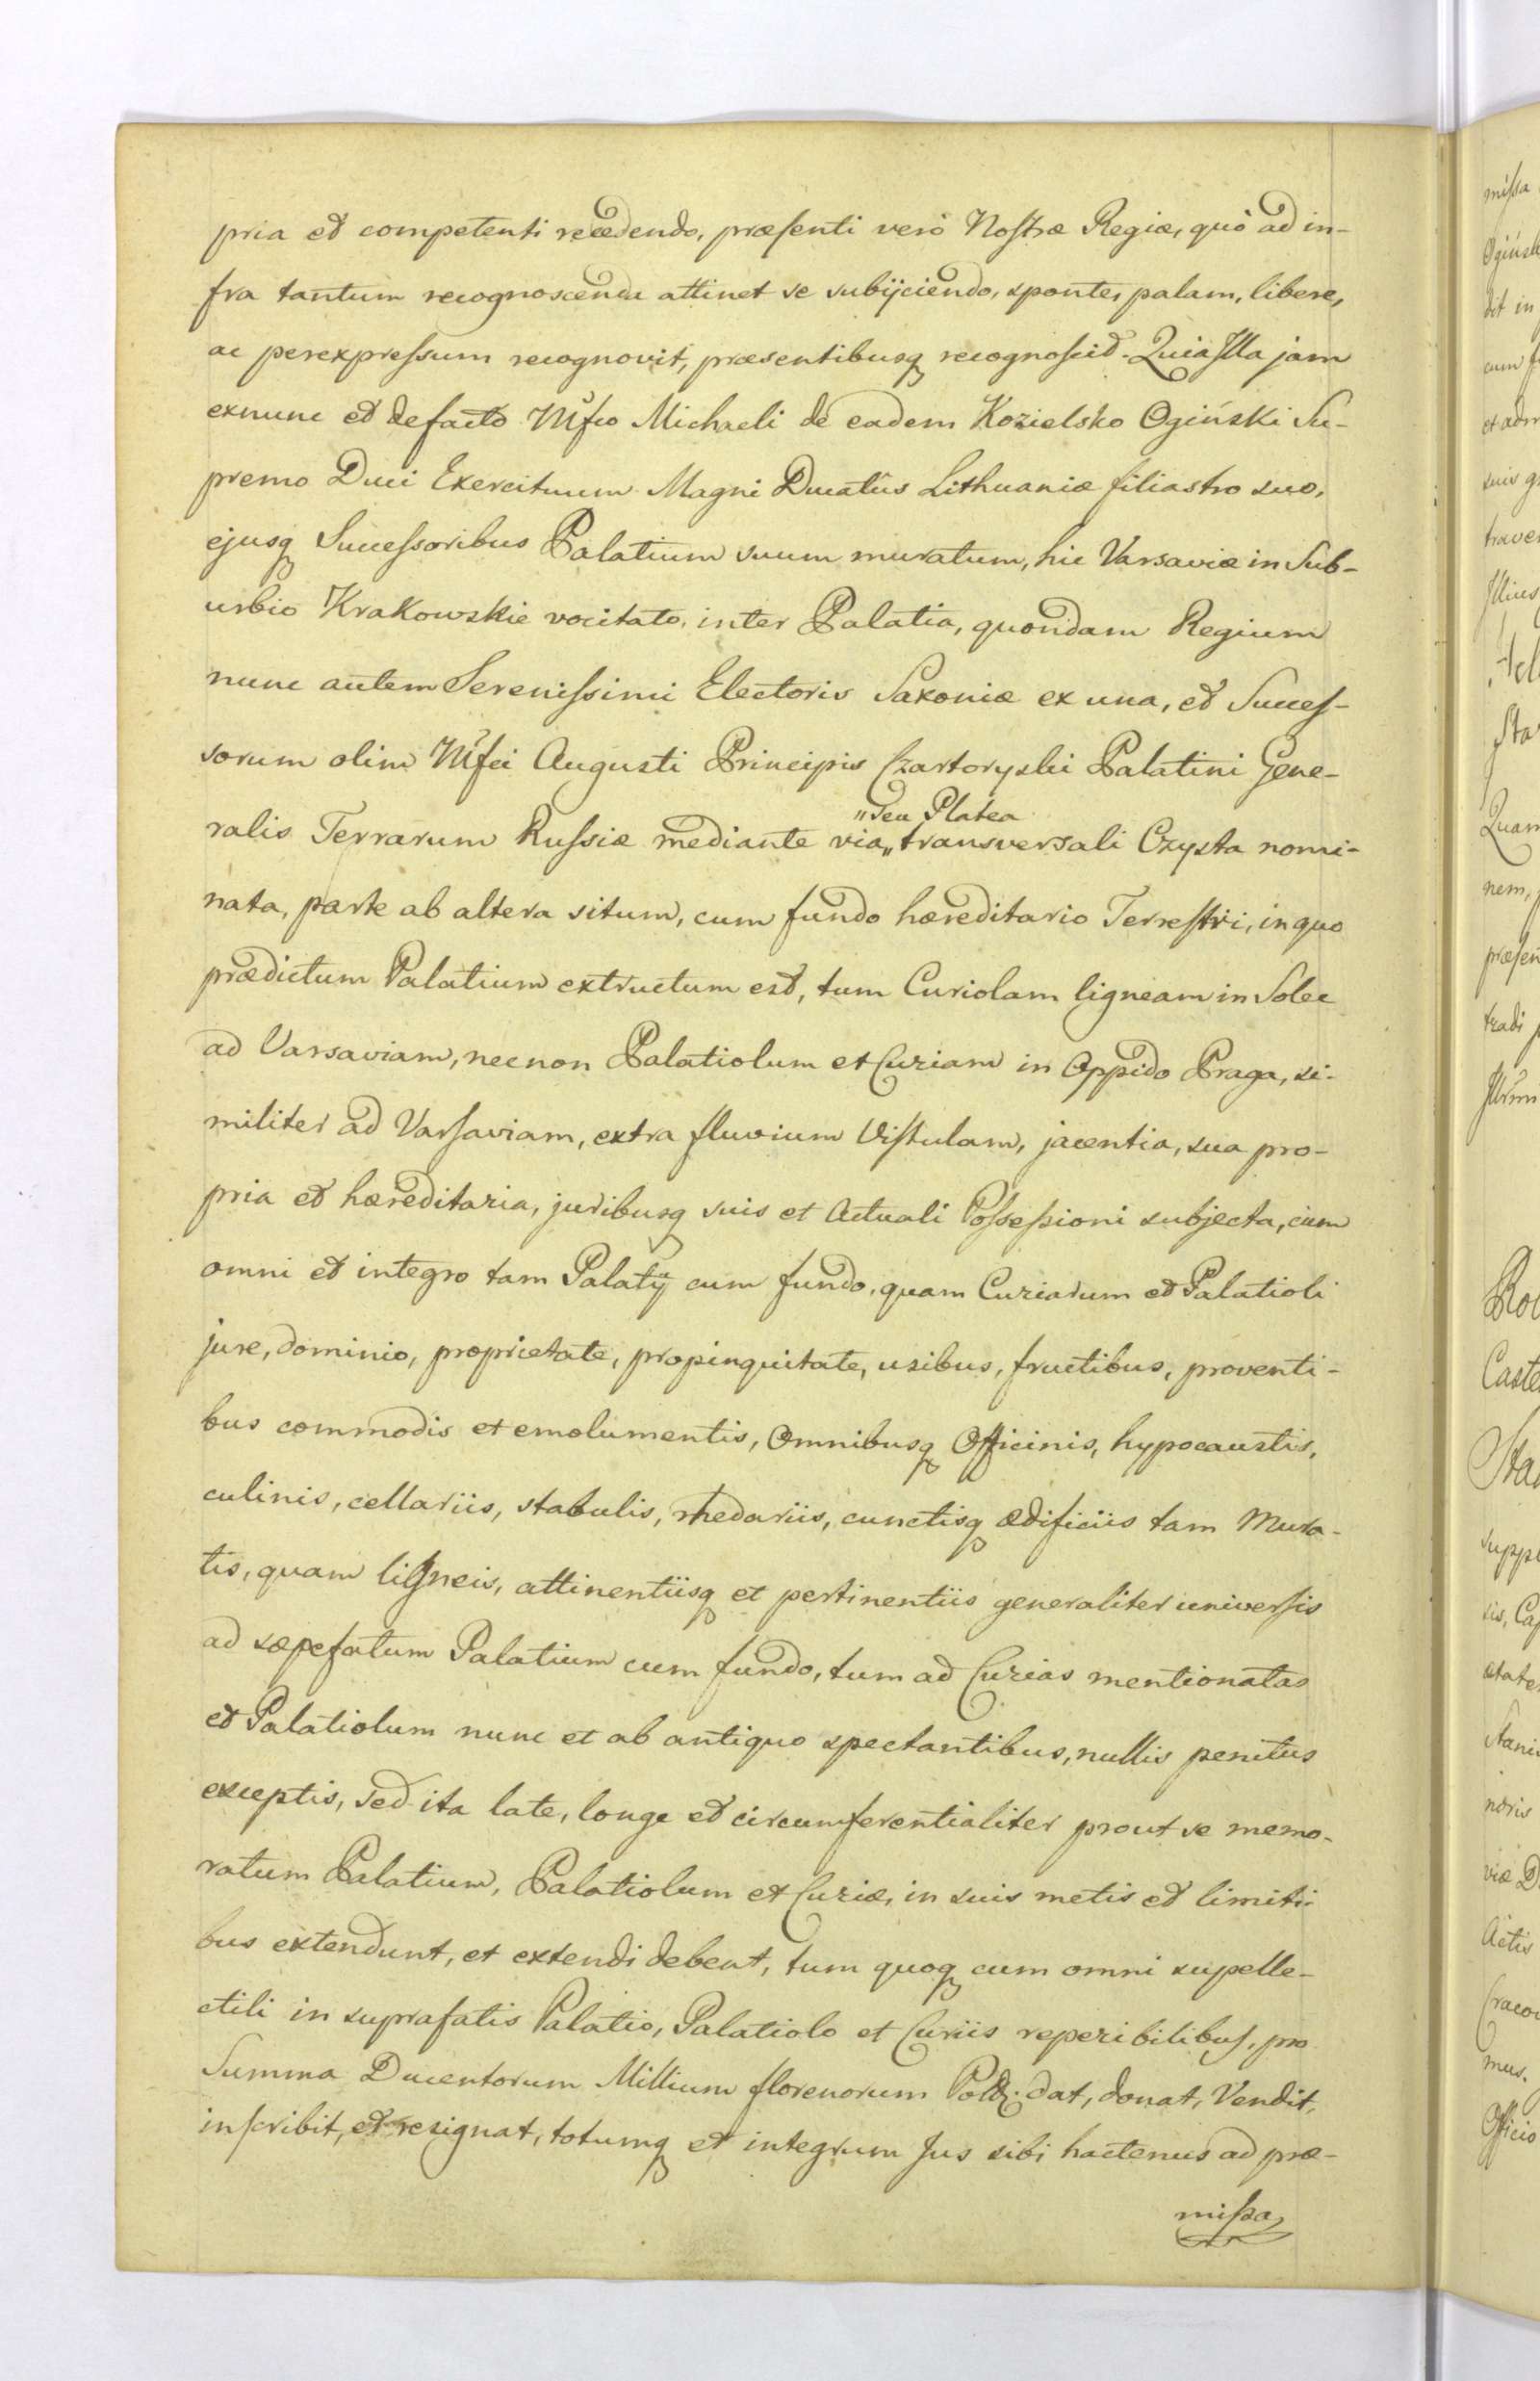 pria et competenti recedendo, præsenti verò Nostræ Regiæ, quò ad in-
fra tantum recognoscenda attinet se subijciendo, sponte, palam, libere,
ac perexpressum recognovit, præsentibusq recognoscit. Quia Illa jam
exnunc et defacto Mfco Michaeli de eadem Kozielsko Ogiński Su-
premo Duci Exercituum Magni Ducatûs Lithuaniæ filiastro suo,
ejusq Successoribus Palatium suum muratum, hic Varsaviæ in Sub-
urbio Krakowskie vocitato, inter Palatia, quondam Regium
nunc autem Serenissimi Electoris Saxoniæ ex una, et Succes-
sorum olim Mfci Augusti Principis Czartoryski Palatini Gene-
ralis Terrarum Russiæ mediante via „seu Platea„ transversali Czysta nomi-
nata, parte ab altera situm, cum fundo hæreditario Terrestri, in quo
prædictum Palatium extructum est, tum Curiolam ligneam in Solec
ad Varsaviam, necnon Palatiolum et Curiam in Oppido Praga, si-
militer ad Varsaviam, extra fluvium Vistulam, jacentia, sua pro-
pria et hæreditaria, juribusq suis et Actuali Possessioni subjecta, cum
omni et integro tam Palatij cum fundo, quam Curiarum et Palatioli
jure, dominio, proprietate, propinquitate, usibus, fructibus, proventi-
bus commodis et emolumentis, Omnibusq Officinis, hypocaustis,
culinis, cellariis, stabulis, rhedariis, cunctisq ædificiis tam Mura-
tis, quam ligneis, attinentiisq et pertinentiis generaliter universis
ad sæpefatum Palatium cum fundo, tum ad Curias mentionatas
et Palatiolum nunc et ab antiquo spectantibus, nullis penitus
exceptis, sed ita late, longe et circumferentialiter prout se memo-
ratum Palatium, Palatiolum et Curiæ, in suis metis et limiti-
bus extendunt, et extendi debent, tum quoq cum omni supelle-
ctili in suprafatis Palatio, Palatiolo et Curiis reperibilibus, pro
Summa Ducentorum Millium florenorum Polł. dat, donat, Vendit,
inscribit, et resignat, totumq et integrum Jus sibi hactenus ad præ-
missa